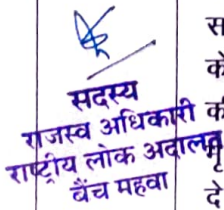 सदस्य
राजस्व अधिकारी
राष्ट्रीय लोक अदालत
बैंच महवा
स
के
की
दे